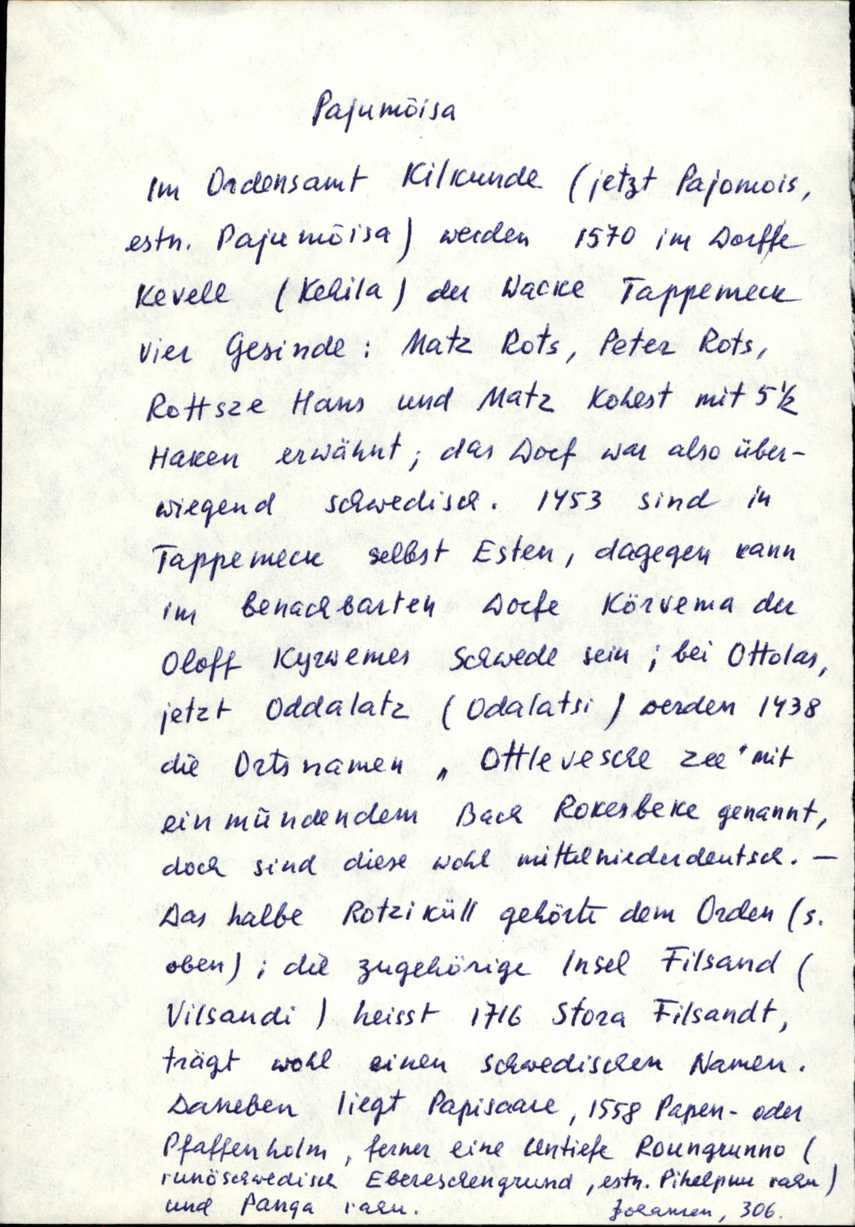 Pajumõisa
Im Ordensamt Kilkunde (jetzt Pajomois,
estn. Pajumõisa) werden 1570 im Dorffe
Kevell (Kehila) der Wacke Tappemeck
vier Gesinde: Matz Rots, Peter Rots,
Rottsze Hans und Matz Kohest mit 5 1/2
Haken erwähnt; das Dorf war also über-
wiegend schwedisch. 1453 sind in
Tappemeck selbst Esten, dagegen kann
im benachbarten Dorfe Körvema der
Oloff Kyrwemes Schwede sein; bei Ottolas,
jetzt Oddalatz (Odalatsi) werden 1438
die Ortsnamen „Ottlevesche zee" mit
einmündendem Bach Rokesbeke genannt,
doch sind diese wohl mittelniederdeutsch. —
Das halbe Rotziküll gehörte dem Orden (s.
oben); die zugehörige Insel Filsand (
Vilsandi) heisst 1716 Stora Filsandt,
trägt wohl einen schwedischen Namen.
Daneben liegt Papisaare, 1558 Papen- oder
Pfaffenholm, ferner eine Untiefe Roungrunno (
runöschwedisch Ebereschengrund, estn. Pihelpuu rahu)
und Panga rahu. Johansen, 306.